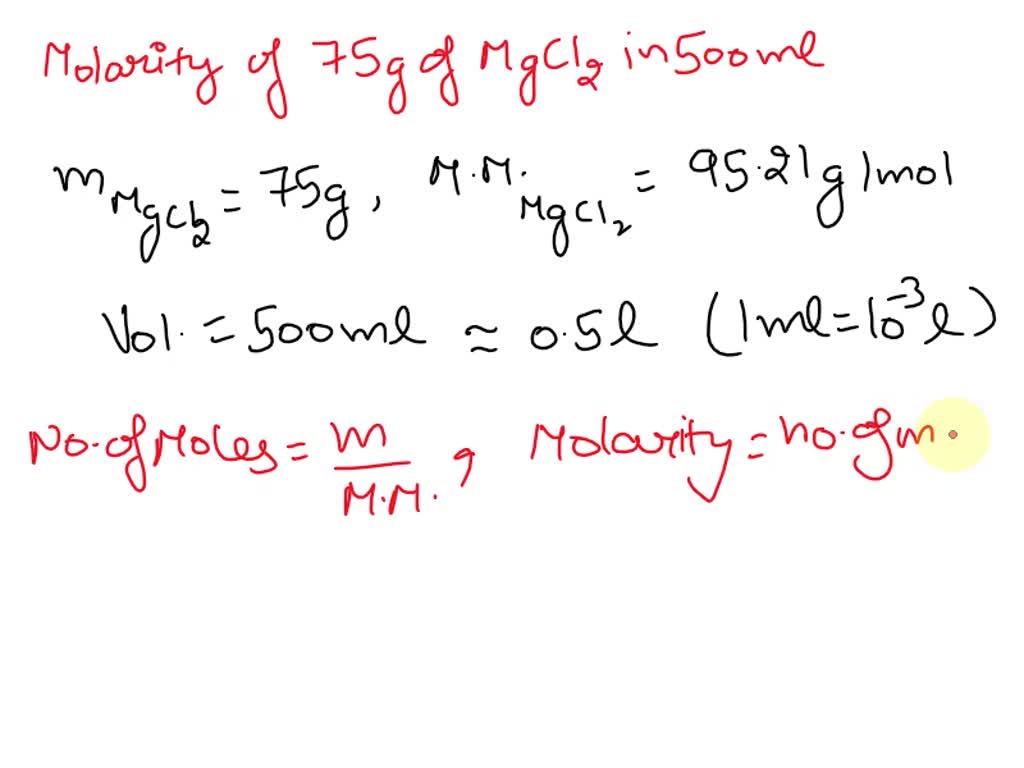 Molarity of 75g of MgCl2 in 500ml
mMgCl2 = 75g, M.M.MgCl2 = 95.21g/mol
Vol. = 500ml ≈ 0.5l (1ml=10⁻³l)
No.ofMoles = m/M.M., Molarity = no.ofm